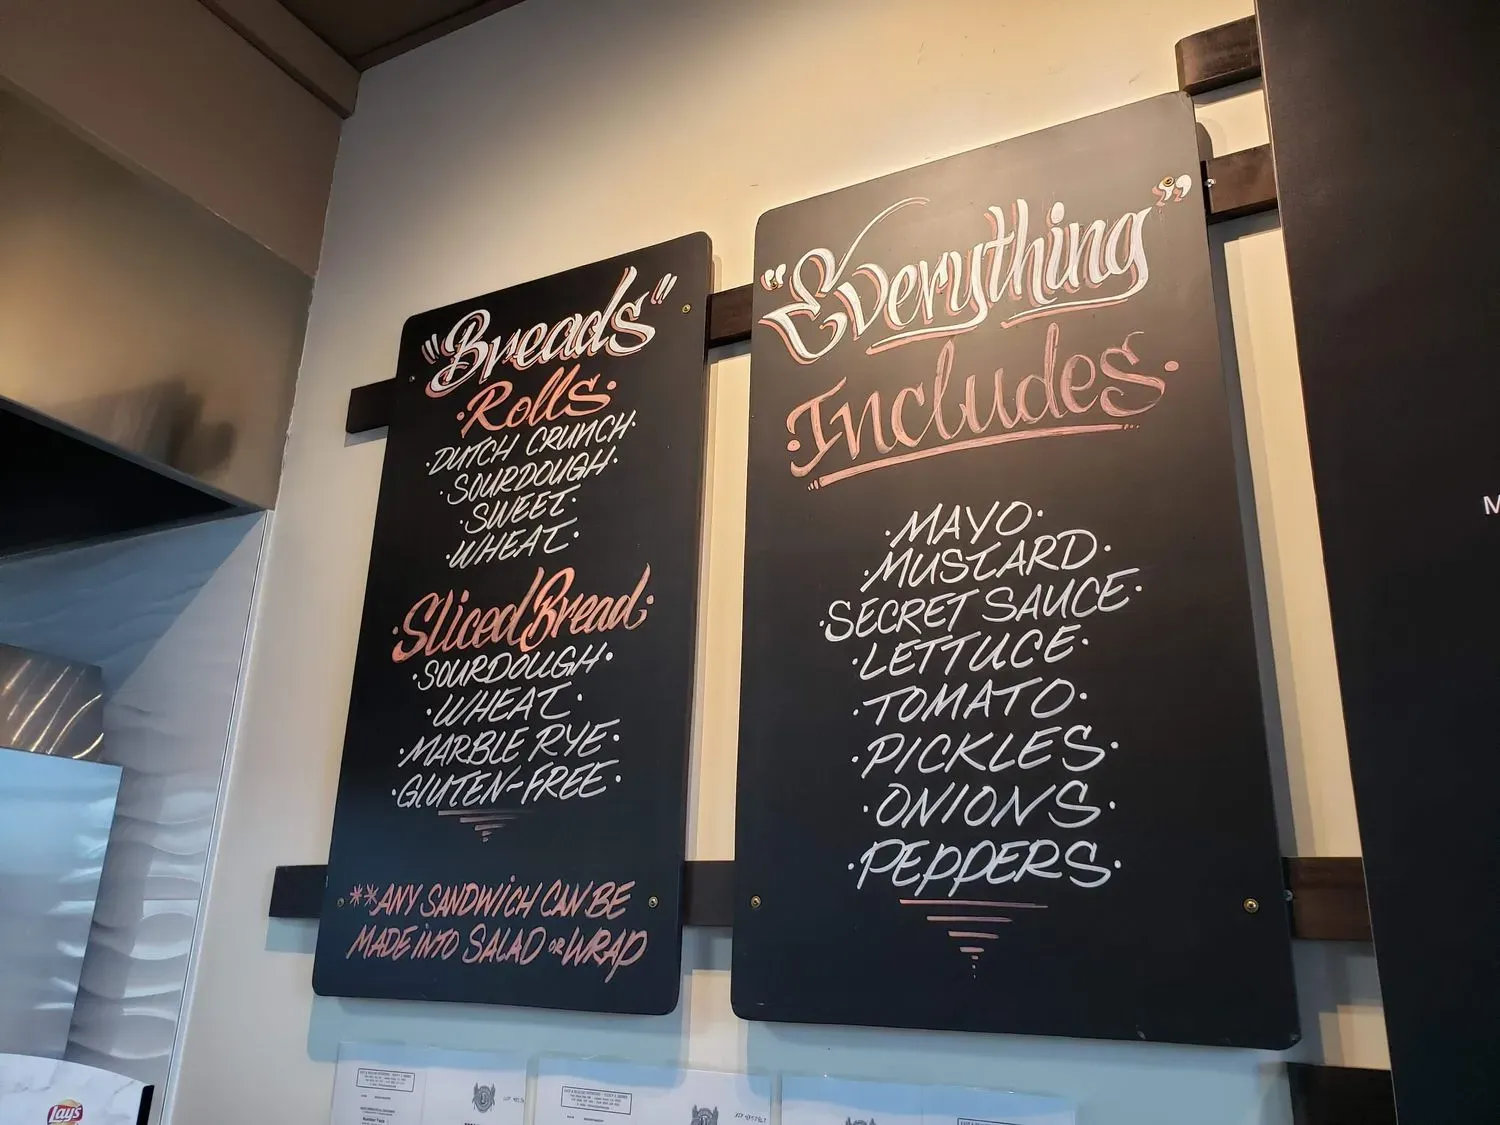 "Breads"
·Rolls·
·DUTCH CRUNCH·
·SOURDOUGH·
·SWEET·
·WHEAT·
·Sliced Bread·
·SOURDOUGH·
·WHEAT·
·MARBLE RYE·
·GLUTEN-FREE·
**ANY SANDWiCH CAN BE
MADE iNTO SALAD OR WRAP
"Everything"
·Includes·
·MAYO·
·MUSTARD·
·SECRET SAUCE·
·LETTUCE·
·TOMATO·
·PICKLES·
·ONIONS·
·PEPPERS·
Lay's